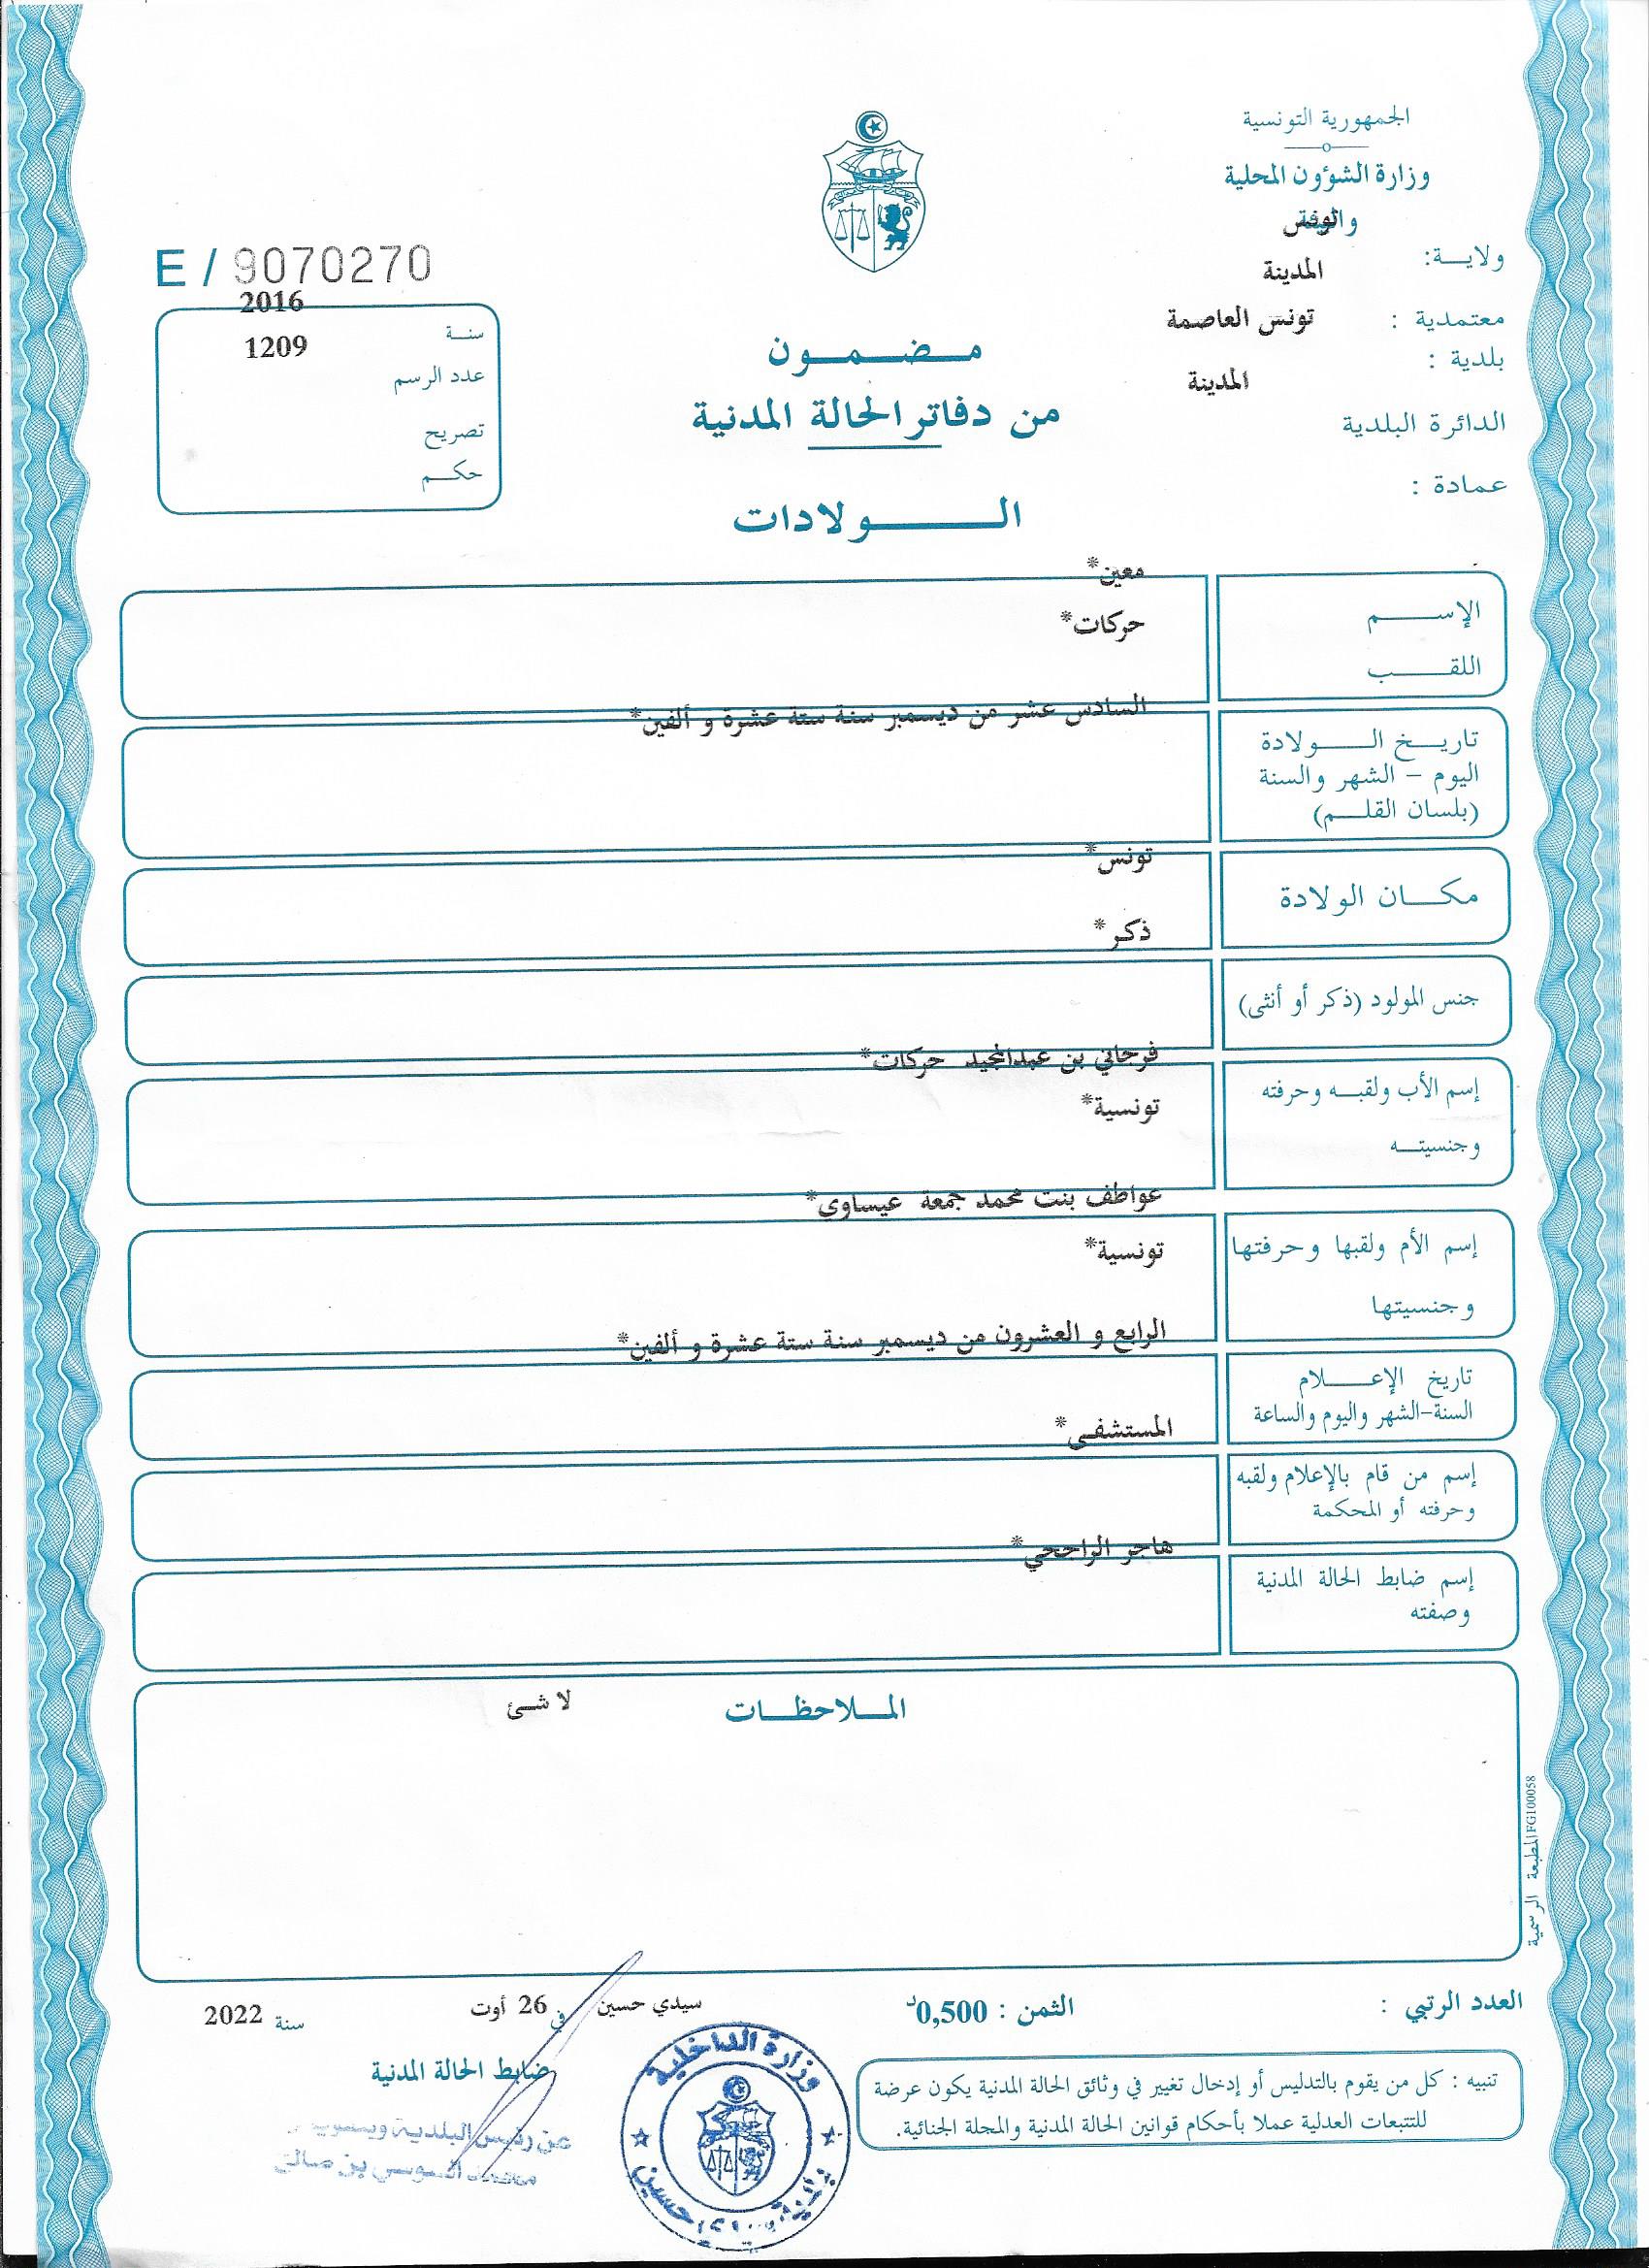 الجمهورية التونسية
وزارة الشؤون المحلية
والبيئة
ولايـــة: تونس
المدينة
معتمدية : تونس العاصمة
بلدية :
المدينة
الدائرة البلدية
عمادة :
E / 9070270
2016
سنــة
1209
عدد الرسم
تصريح
حكــم
مـضـمـون
من دفاتر الحالة المدنية
الـــولادات
معين*
الإســـم
حركات*
اللقـــب
السادس عشر من ديسمبر سنة ستة عشرة و ألفين*
تاريــخ الـــولادة
اليوم – الشهر والسنة
(بلسان القلــم)
تونس*
مكـــان الولادة
ذكر*
جنس المولود (ذكر أو أنثى)
فرجاني بن عبدالمجيد حركات*
إسم الأب ولقبــه وحرفته
تونسية*
وجنسيتــه
عواطف بنت محمد جمعة عيساوي*
إسم الأم ولقبها وحرفتها
تونسية*
وجنسيتها
الرابع و العشرون من ديسمبر سنة ستة عشرة و ألفين*
تاريخ الإعـــلام
السنة-الشهر واليوم والساعة
المستشفى*
إسم من قام بالإعلام ولقبه
وحرفته أو المحكمة
هاجر الراجحي*
إسم ضابط الحالة المدنية
وصفته
المــلاحظــات لا شئ
المطبعة الرسمية FG100058
العدد الرتبي :
الثمن : 0,500د
سيدي حسين في 26 أوت سنة 2022
ضابط الحالة المدنية
تنبيه : كل من يقوم بالتدليس أو إدخال تغيير في وثائق الحالة المدنية يكون عرضة
للتتبعات العدلية عملا بأحكام قوانين الحالة المدنية والمجلة الجنائية.
وزارة الداخلية
حسين
عن رئيس البلدية
بن صالح